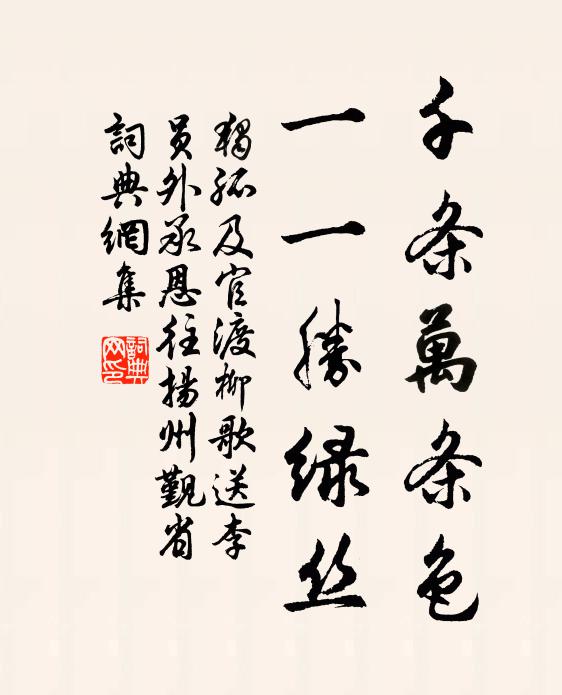 千条萬条色
一一勝绿丝
獨孤及官渡柳歌送李
员外承恩往揚州觐省
詞典網集
詞典
网印